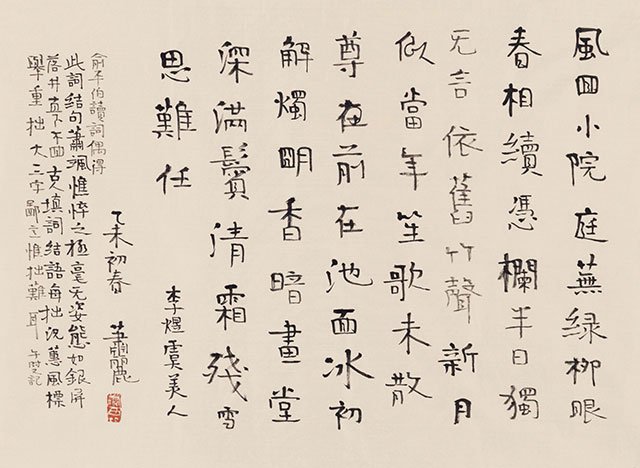 風回小院庭蕪绿柳眼
春相續憑欄半日獨
无言依舊竹聲新月
似當年笙歌未散
尊在前在池面冰初
解燭明香暗畫堂
深滿鬢清霜殘雪
思難任
李煜虞美人
乙未初春
俞平伯讀詞偶得
此詞結句蕭颯憔悴之極毫无姿態如銀屏
落井直下不回古填詞結語每拙況蕙風標
舉重拙大三字鄙意惟拙難耳